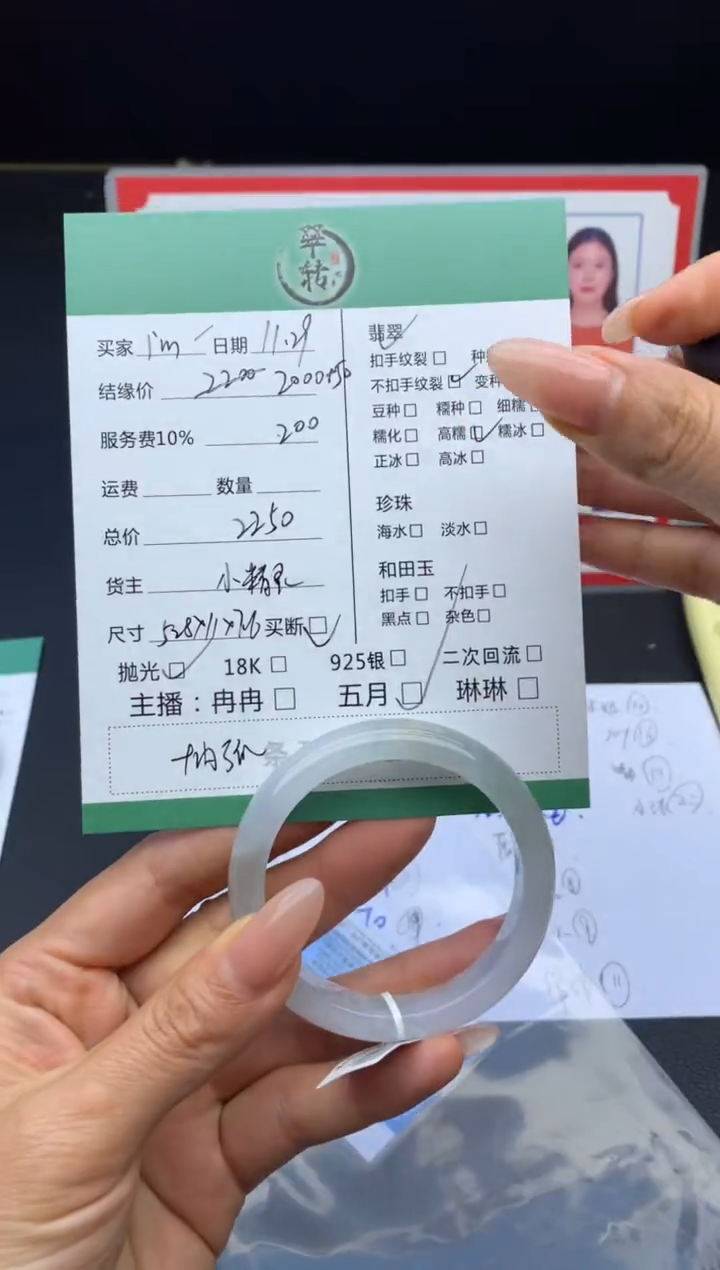 翠
转
买家 i'm 日期 11.29
结缘价 2200 2000+50
服务费10% 200
运费 数量
总价 2250
货主
尺寸 买断
抛光 18K 925银 二次回流
主播：冉冉 五月 琳琳
翡翠
扣手纹裂 种
不扣手纹裂 变种
豆种 糯种 细糯
糯化 高糯 糯冰
正冰 高冰
珍珠
海水 淡水
和田玉
扣手 不扣手
黑点 杂色